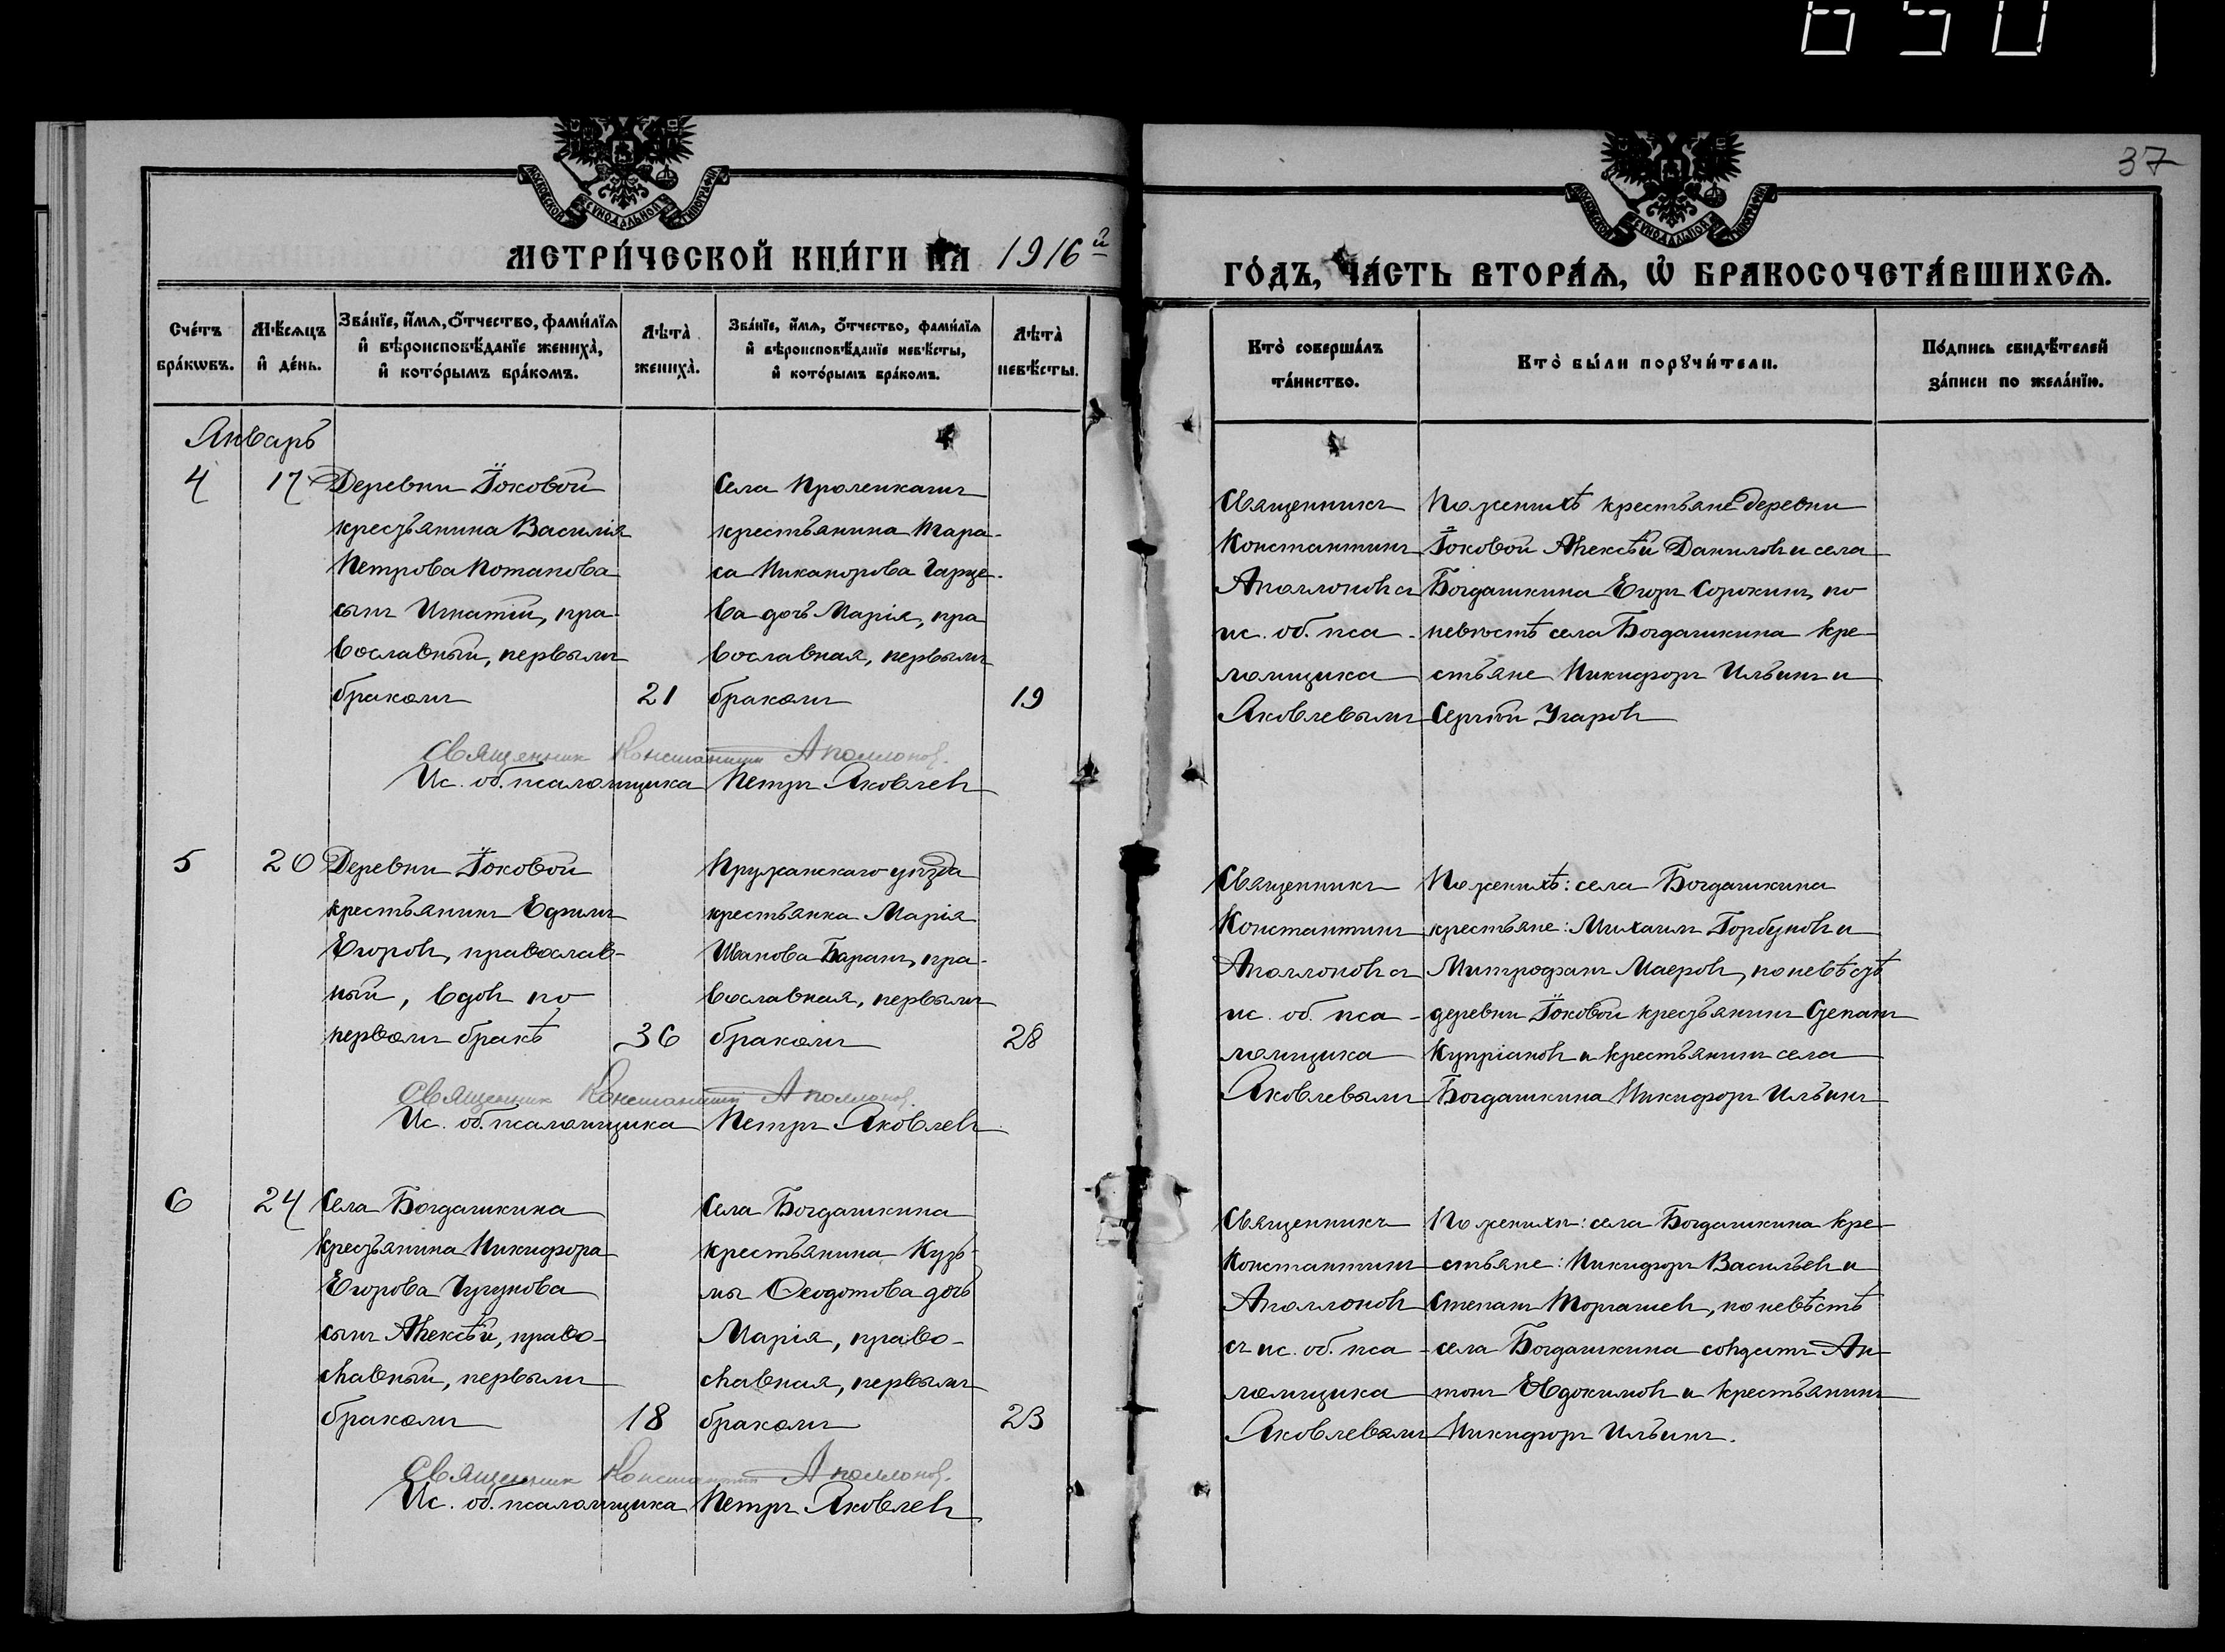 650
37
МОСКОВСКОЙ СѴНОДАЛЬНОЙ ТИПОГРАФІИ
МОСКОВСКОЙ СѴНОДАЛЬНОЙ ТИПОГРАФІИ
МЕТРИ́ЧЕСКОЙ КНИ́ГИ НА 1916й
ГО́ДЪ, ЧА́СТЬ ВТОРА́Ѧ, Ѡ БРАКОСОЧЕТА́ВШИХСѦ.
Сче́тъ бра́кѡвъ.
Мѣ́сѧцъ и де́нь.
Зва́нїе, и́мѧ, ѻ́тчество, фами́лїѧ
и вѣроисповѣ́данїе жениха̀,
и кото́рымъ бра́комъ.
Лѣта̀ жениха̀.
Зва́нїе, и́мѧ, ѻ́тчество, фами́лїѧ
и вѣроисповѣ́данїе невѣ́сты,
и кото́рымъ бра́комъ.
Лѣта̀ невѣ́сты.
Кто̀ соверша́лъ
та́инство.
Кто̀ бы́ли порꙋчи́тели.
По́дпись свидѣ́телей
за́писи по жела́нїю.
Январь
4
17
Деревни Іоковой
крестьянина Василія
Петрова Потапова
сынъ Игнатій, пра
вославный, первымъ
бракомъ
21
Села
крестьянина Тара-
са Никанорова Гарце-
ва дочь Марія, пра
вославная, первымъ
бракомъ
19
Священникъ
Константинъ
Аполлоновъ съ
ис. об. пса-
ломщика
Яковлевымъ
По женихѣ крестьяне деревни
Іоковой Алексѣй Даниловъ и села
Богдашкина Егоръ Сорокинъ, по
невѣстѣ села Богдашкина кре-
стьяне Никифоръ Ильинъ и
Сергѣй Угаровъ
Священник Константин Аполлонов.
Ис. об. псаломщика Петръ Яковлевъ
5
20
Деревни Іоковой
крестьянинъ Ефимъ
Егоровъ, православ-
ный, вдовъ по
первомъ бракѣ
36
Пружанскаго уѣзда
крестьянка Марія
Иванова Баранъ, пра-
вославная, первымъ
бракомъ
28
Священникъ
Константинъ
Аполлоновъ съ
ис. об. пса-
ломщика
Яковлевымъ
По женихѣ: села Богдашкина
крестьяне: Михаилъ Горбуновъ и
Митрофанъ Маеровъ, по невѣстѣ
деревни Іоковой крестьянинъ Степанъ
Купріановъ и крестьянинъ села
Богдашкина Никифоръ Ильинъ
Священник Константин Аполлонов.
Ис. об. псаломщика Петръ Яковлевъ
6
24
Села Богдашкина
крестьянина Никифора
Егорова Чугунова
сынъ Алексѣй, право-
славный, первымъ
бракомъ
18
Села Богдашкина
крестьянина Кузь-
мы Ѳеодотова дочь
Марія, право-
славная, первымъ
бракомъ
23
Священникъ
Константинъ
Аполлоновъ
съ ис. об. пса-
ломщика
Яковлевымъ
По женихѣ: села Богдашкина кре-
стьяне: Никифоръ Васильевъ и
Степанъ Торгашевъ, по невѣстѣ
села Богдашкина солдатъ Ан-
тонъ Евдокимовъ и крестьянинъ
Никифоръ Ильинъ.
Священник Константин Аполлонов.
Ис. об. псаломщика Петръ Яковлевъ